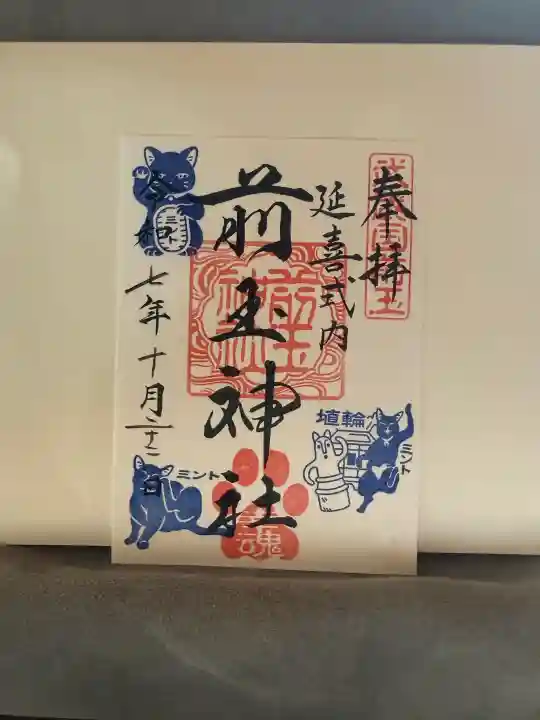 奉拝
延喜式内
前玉神社
令和七年十月二十二日
前玉神社
ミント
埴輪
ミント
ミント
幸魂